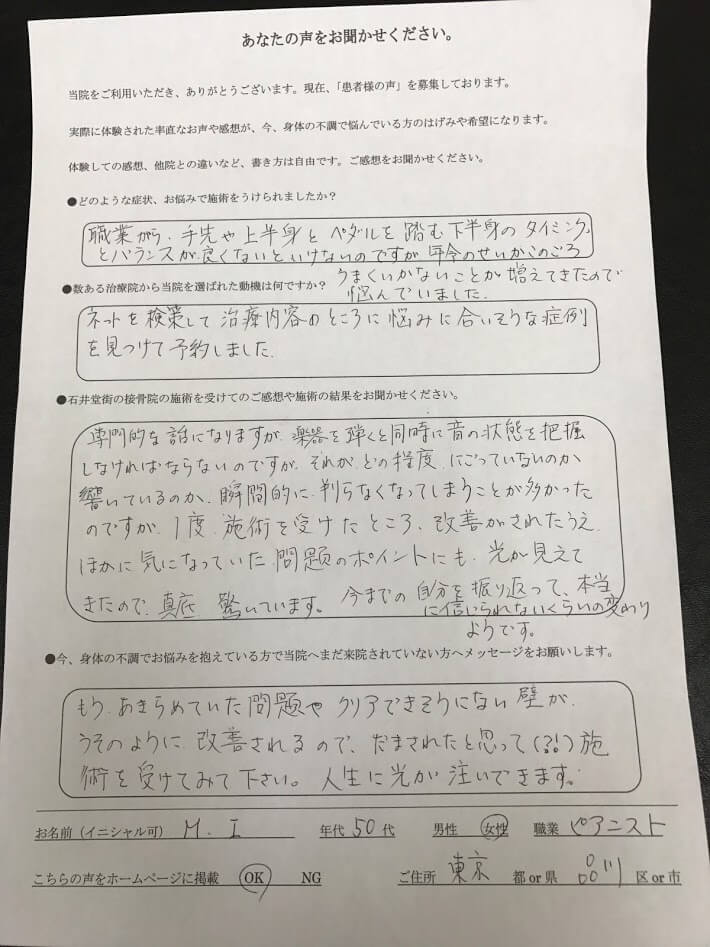 あなたの声をお聞かせください。
当院をご利用いただき、ありがとうございます。現在、「患者様の声」を募集しております。
実際に体験された率直なお声や感想が、今、身体の不調で悩んでいる方のはげみや希望になります。
体験しての感想、他院との違いなど、書き方は自由です。ご感想をお聞かせください。
●どのような症状、お悩みで施術をうけられましたか？
職業がら、手先や上半身とペダルを踏む下半身のタイミング
とバランスが良くないといけないのですが年令のせいかこのごろ
うまくいかないことが増えてきたので
悩んでいました。
●数ある治療院から当院を選ばれた動機は何ですか？
ネットを検策して治療内容のところに悩みに合いそうな症例
を見つけて予約しました。
●石井堂街の接骨院の施術を受けてのご感想や施術の結果をお聞かせください。
専門的な話になりますが、楽器を弾くと同時に音の状態を把握
しなければならないのですが、それが、どの程度、にごっていないのか
響いているのか、瞬間的に、判らなくなってしまうことが多かった
のですが、1度、施術を受けたところ、改善がされたうえ、
ほかに気になっていた問題のポイントにも、光が見えて
きたので、真底、驚いています。今までの自分を振り返って、本当
に信じられないくらいの変わり
ようです。
●今、身体の不調でお悩みを抱えている方で当院へまだ来院されていない方へメッセージをお願いします。
もう、あきらめていた問題やクリアできそうにない壁が、
うそのように、改善されるので、だまされたと思って(?!)施
術を受けてみて下さい。人生に光が注いできます。
お名前（イニシャル可） M. I 年代 50 代 男性 女性 職業 ピアニスト
こちらの声をホームページに掲載 OK NG ご住所 東京 都 or 県 品川 区 or 市